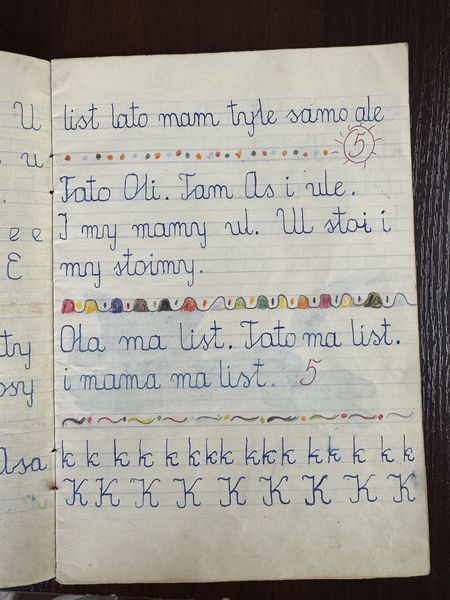 U
u
e e
E
try
osy
Asa
list lato mam tyle samo ale
5
Tato Oli. Tam As i ule.
I my mamy ul. Ul stoi i
my stoimy.
Ola ma list. Tato ma list.
i mama ma list. 5
k k k k k k k k k k k k k k k
K K K K K K K K K